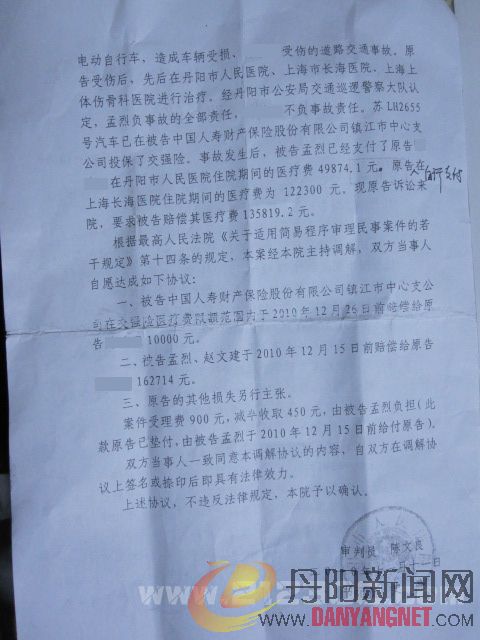 电动自行车，造成车辆受损、 受伤的道路交通事故。原
告受伤后，先后在丹阳市人民医院、上海市长海医院、上海上
体伤骨科医院进行治疗。经丹阳市公安局交通巡逻警察大队认
定，孟烈负事故的全部责任， 不负事故责任。苏LH2655
号汽车已在被告中国人寿财产保险股份有限公司镇江市中心支
公司投保了交强险。事故发生后，被告孟烈已经支付了原告
在丹阳市人民医院住院期间的医疗费49874.1元。原告在
上海长海医院住院期间的医疗费为 122300元。现原告诉讼来
院，要求被告赔偿其医疗费135819.2元。
根据最高人民法院《关于适用简易程序审理民事案件的若
干规定》第十四条的规定，本案经本院主持调解，双方当事人
自愿达成如下协议：
一、被告中国人寿财产保险股份有限公司镇江市中心支公
司在交强险医疗费限额范围内于2010年12月26日前赔偿给原
告 10000元。
二、被告孟烈、赵文建于2010年12月15日前赔偿给原告
162714元。
三、原告的其他损失另行主张。
案件受理费900元，减半收取450元，由被告孟烈负担（此
款原告已垫付，由被告孟烈于2010年12月15日前给付原告）。
双方当事人一致同意本调解协议的内容，自双方在调解协
议上签名或捺印后即具有法律效力。
上述协议，不违反法律规定，本院予以确认。
审判员 陈文良
月十一日
丹阳新闻网
DANYANGNET.COM